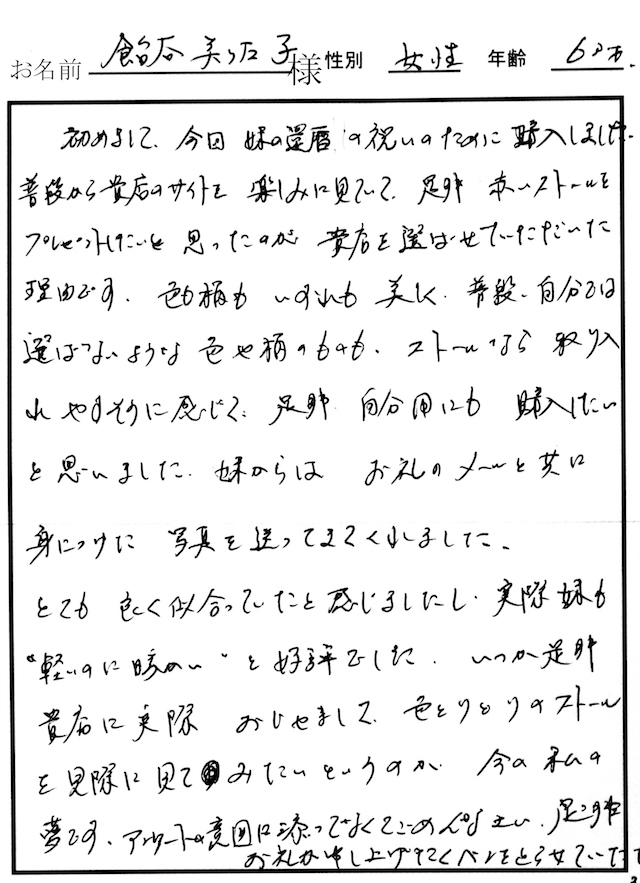 お名前 飴谷 美 子 様 性別 女性 年齢 60才.
初めまして、今回 妹の還暦の祝いのために 購入しました.
普段から貴店のサイトを 楽しみに見ていて、是非 赤いストールを
プレゼントしたいと 思ったのが 貴店を選ばせていただいた
理由です. 色も柄も いずれも 美しく. 普段、自分では
選ばないような 色や柄のものも. ストールなら 取り入
れやすそうに感じて、是非 自分用にも 購入したい
と思いました. 妹からは お礼のメールと共に
身につけた 写真を 送ってきてくれました.
とても 良く似合っていたと感じましたし. 実際 妹も
"軽いのに暖かい" と好評でした. いつか是非
貴店に実際 おじゃまして、色とりどりのストール
を 見てみたいというのが 今の 私の
夢です. アンケートの意図に添ってなくてごめんなさい. 是非
お礼が申し上げたくペンをとらせていただ